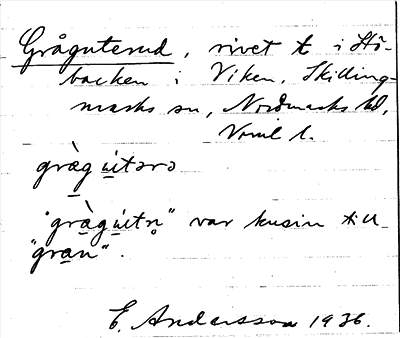 Gråguterud, rivet t i Stö-
backen i Viken, Skillings-
marks sn, Nordmarks hd,
Vrml l.
gràg ùtərə
"gràgùtṇ" var kusin till
"gran".
E. Andersson 1936.